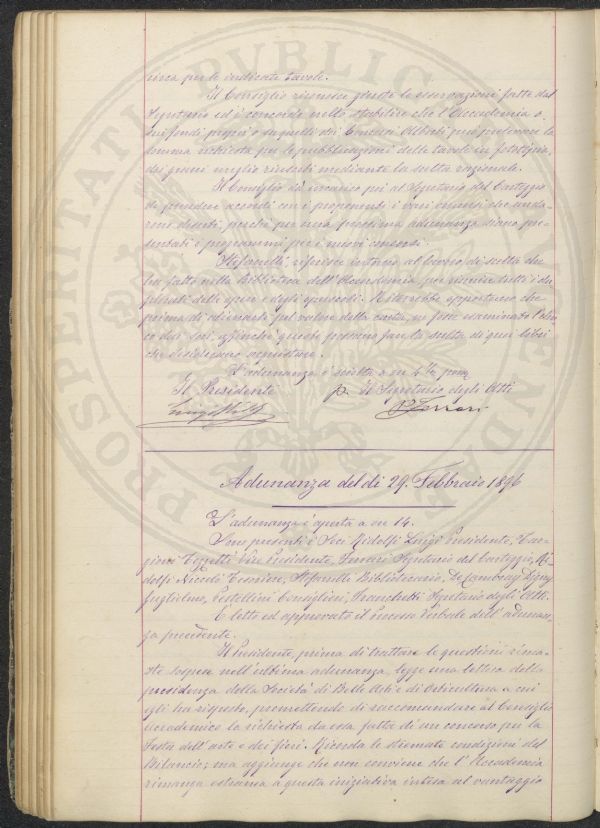 circa per le indicate tavole.
Il Consiglio riconosce giuste le osservazioni fatte dal
Segretario ed è concorde nello stabilire che l'Accademia o
sui fondi propri o su quelli dei Concorsi Alberti può prelevare la
somma richiesta per le pubblicazioni delle tavole in fototipia,
dei grani meglio riusciti mediante la scelta razionale.
Il Consiglio dà incarico poi al Segretario del Carteggio
di prendere accordi con i proponenti i vari concorsi che anda-
rono deserti, perché per una prossima adunanza siano pre-
sentati i programmi per i nuovi concorsi.
Stefanelli, riferisce intorno al lavoro di scelta che
ha fatto nella Biblioteca dell'Accademia, per riunire tutti i du-
plicati delle opere e degli opuscoli. Riterrebbe opportuno che
prima di alienarli pel valore della carta, ne fosse esaminato l'elen-
co dai soci, affinché questi possano fare la scelta di quei libri
che desiderano acquistare.
L'adunanza è sciolta a ore 4 1/2 pom
Il Presidente p. Il Segretario degli Atti
Luigi Ridolfi P. Ferrari
Adunanza del dì 29. Febbraio 1896
L'adunanza è aperta a ore 14.
Sono presenti i Soci Ridolfi Luigi Presidente, Tar-
gioni Tozzetti Vice Presidente, Ferrari Segretario del Carteggio, Ri-
dolfi Niccolò Tesoriere, Stefanelli Bibliotecario, De Cambray Digny
Guglielmo, Pestellini Consiglieri, Franchetti Segretario degli Atti.
È letto ed approvato il Processo Verbale dell'adunan-
za precedente.
Il Presidente, prima di trattare le questioni rima-
ste sospese nell'ultima adunanza, legge una lettera della
presidenza della Società di Belle Arti e di Orticultura a cui
egli ha risposto, promettendo di raccomandare al Consiglio
accademico la richiesta da essa fatta di un concorso per la
Festa dell'arte e dei fiori. Ricorda le stremate condizioni del
Bilancio; ma aggiunge che non conviene che l'Accademia
rimanga estranea a questa iniziativa intesa al vantaggio
PROSPERITATI PVBLICAE AVGENDAE